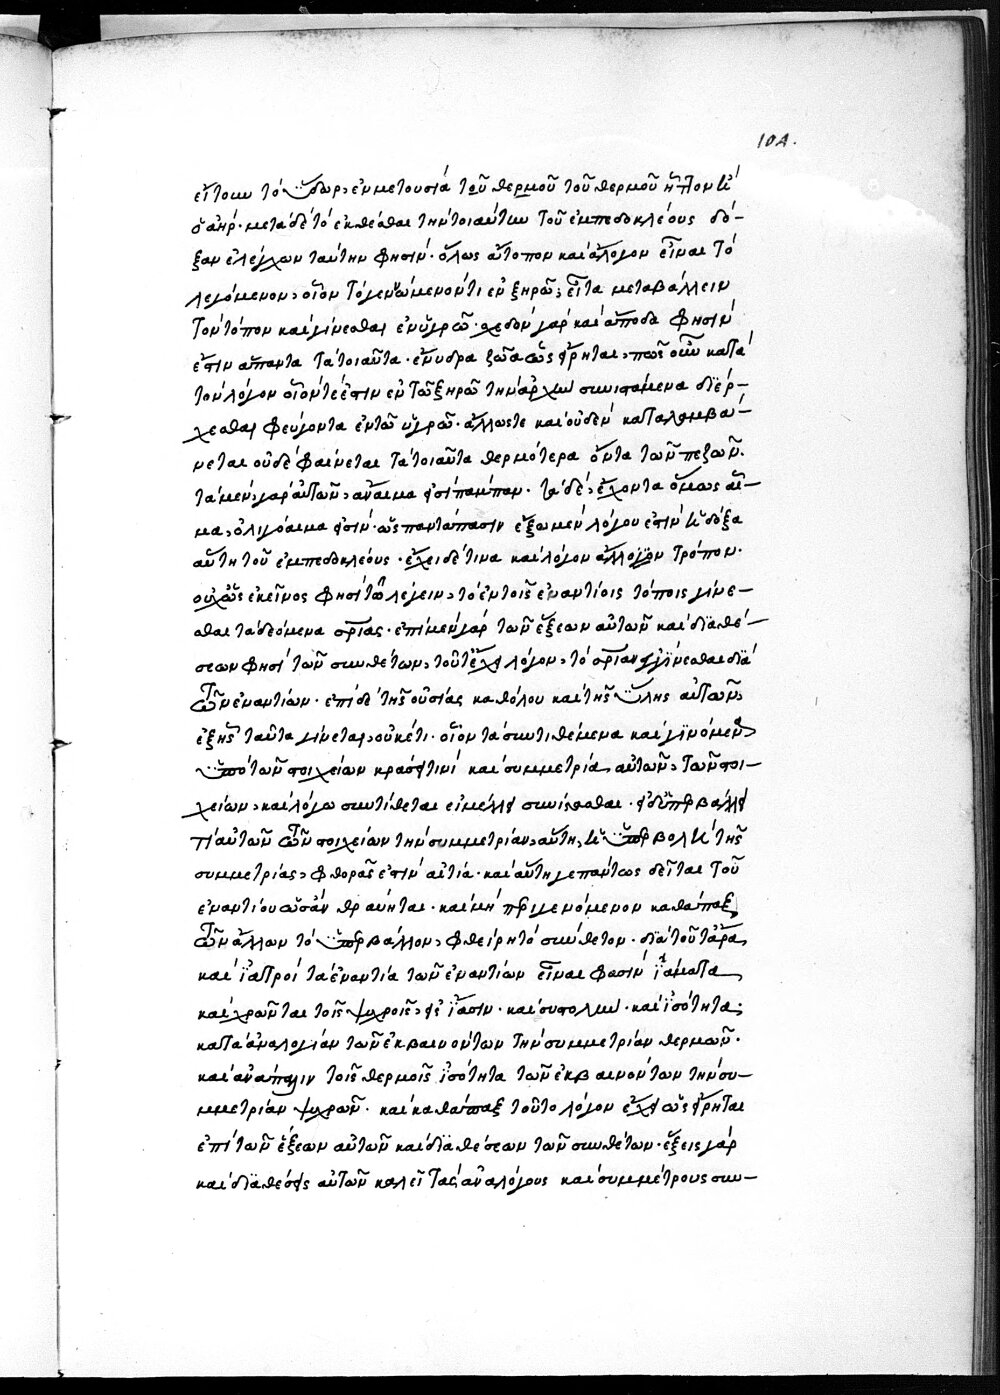 104.
εἴτουν τὸ ὕδωρ, ἐν μετουσία τοῦ θερμοῦ τοῦ θερμοῦ ἧττον ἢ
ὁ ἀήρ· μετὰ δὲ τὸ ἐκθέσθαι τὴν τοιαύτην τοῦ ἐμπεδοκλέους δό-
ξαν ἐλέγχων ταύτην φησίν· ὅλως ἄτοπον καὶ ἄλογον εἶναι τὸ
λεγόμενον, οἷον τὸ γεννώμενόν τι ἐν ξηρῶ, εἶτα μεταβάλλειν
τὸν τόπον καὶ γίνεσθαι ἐν ὑγρῶ· σχεδὸν γὰρ καὶ ἄποδα φησὶν
ἐστιν ἅπαντα τὰ τοιαῦτα· ἔνυδρα ζῶα ὡς εἴρηται, πῶς οὖν κατὰ
τὸν λόγον οἷόν τέ ἐστιν ἐν τῶ ξηρῶ τὴν ἀρχὴν συνιστάμενα διέρ-
χεσθαι φεύγοντα ἐν τῶ ὑγρῶ· ἄλλως τε καὶ οὐδὲν καταλαμβά-
νεται οὐδὲ φαίνεται τὰ τοιαῦτα θερμότερα ὄντα τῶν πεζῶν·
τὰ μὲν γὰρ αὐτῶν, ἄναιμα εἰσὶ πάμπαν· τὰ δὲ, ἔχοντα ὅμως αἷ-
μα, ὀλιγόαιμα εἰσίν· ὡς παντάπασιν ἔξω μὲν λόγου ἐστὶν ἡ δόξα
αὕτη τοῦ ἐμπεδοκλέους· ἔχει δέ τινα καὶ λόγον ἄλλον τρόπον·
οὐχ ὡς ἐκεῖνος φησὶ τῶ λέγειν, τὸ ἐν τοῖς ἐναντίοις τόποις γίνε-
σθαι τὰ δεόμενα σωτηρίας· ἐπὶ μὲν γὰρ τῶν ἕξεων αὐτῶν καὶ διαθέ-
σεων φησὶ τῶν συνθέτων, τοῦτ' ἔχει λόγον, τὸ σωτηρίαν γίνεσθαι διὰ
τῶν ἐναντίων· ἐπὶ δὲ τῆς οὐσίας καθόλου καὶ τῆς ὕλης αὐτῶν,
ἐξ ἧς ταῦτα γίνεται, οὐκέτι· οἷον τὰ συντιθέμενα καὶ γινόμενα
ὑπὸ τῶν στοιχείων κράσει τινὶ καὶ συμμετρία αὐτῶν, τῶν στοι-
χείων, καὶ λόγω συντίθεται εἰ μέλλει συνίστασθαι· εἰ δὲ ὑπερβάλλει
τί αὐτῶν τῶν στοιχείων τὴν συμμετρίαν, αὕτη, ἡ ὑπερβολὴ τῆς
συμμετρίας, φθορᾶς ἐστὶν αἰτία· καὶ αὕτη γε πάντως δεῖται τοῦ
ἐναντίου ὡς ἂν θεραπεύηται· καὶ μὴ περιγενόμενον καθάπαξ
τῶν ἄλλων τὸ ὑπερβάλλον, φθείρη τὸ σύνθετον· διὰ τοῦτ' ἄρα
καὶ ἰατροὶ τὰ ἐναντία τῶν ἐναντίων εἶναι φασὶν ἰάματα
καὶ χρῶνται τοῖς ψυχροῖς, εἰς ἴασιν· καὶ συστολὴν· καὶ ἰσότητα,
κατὰ ἀναλογίαν τῶν ἐκβαινόντων τὴν συμμετρίαν θερμῶν·
καὶ ἀνάπαλιν τοῖς θερμοῖς ἰσότητα τῶν ἐκβαινόντων τὴν συ-
μμετρίαν ψυχρῶν· καὶ καθάπαξ τοῦτο λόγον ἔχει ὡς εἴρηται
ἐπὶ τῶν ἕξεων αὐτῶν καὶ διαθέσεων τῶν συνθέτων· ἕξεις γὰρ
καὶ διαθέσεις αὐτῶν καλεῖ τὰς ἀναλόγους καὶ συμμέτρους συν-